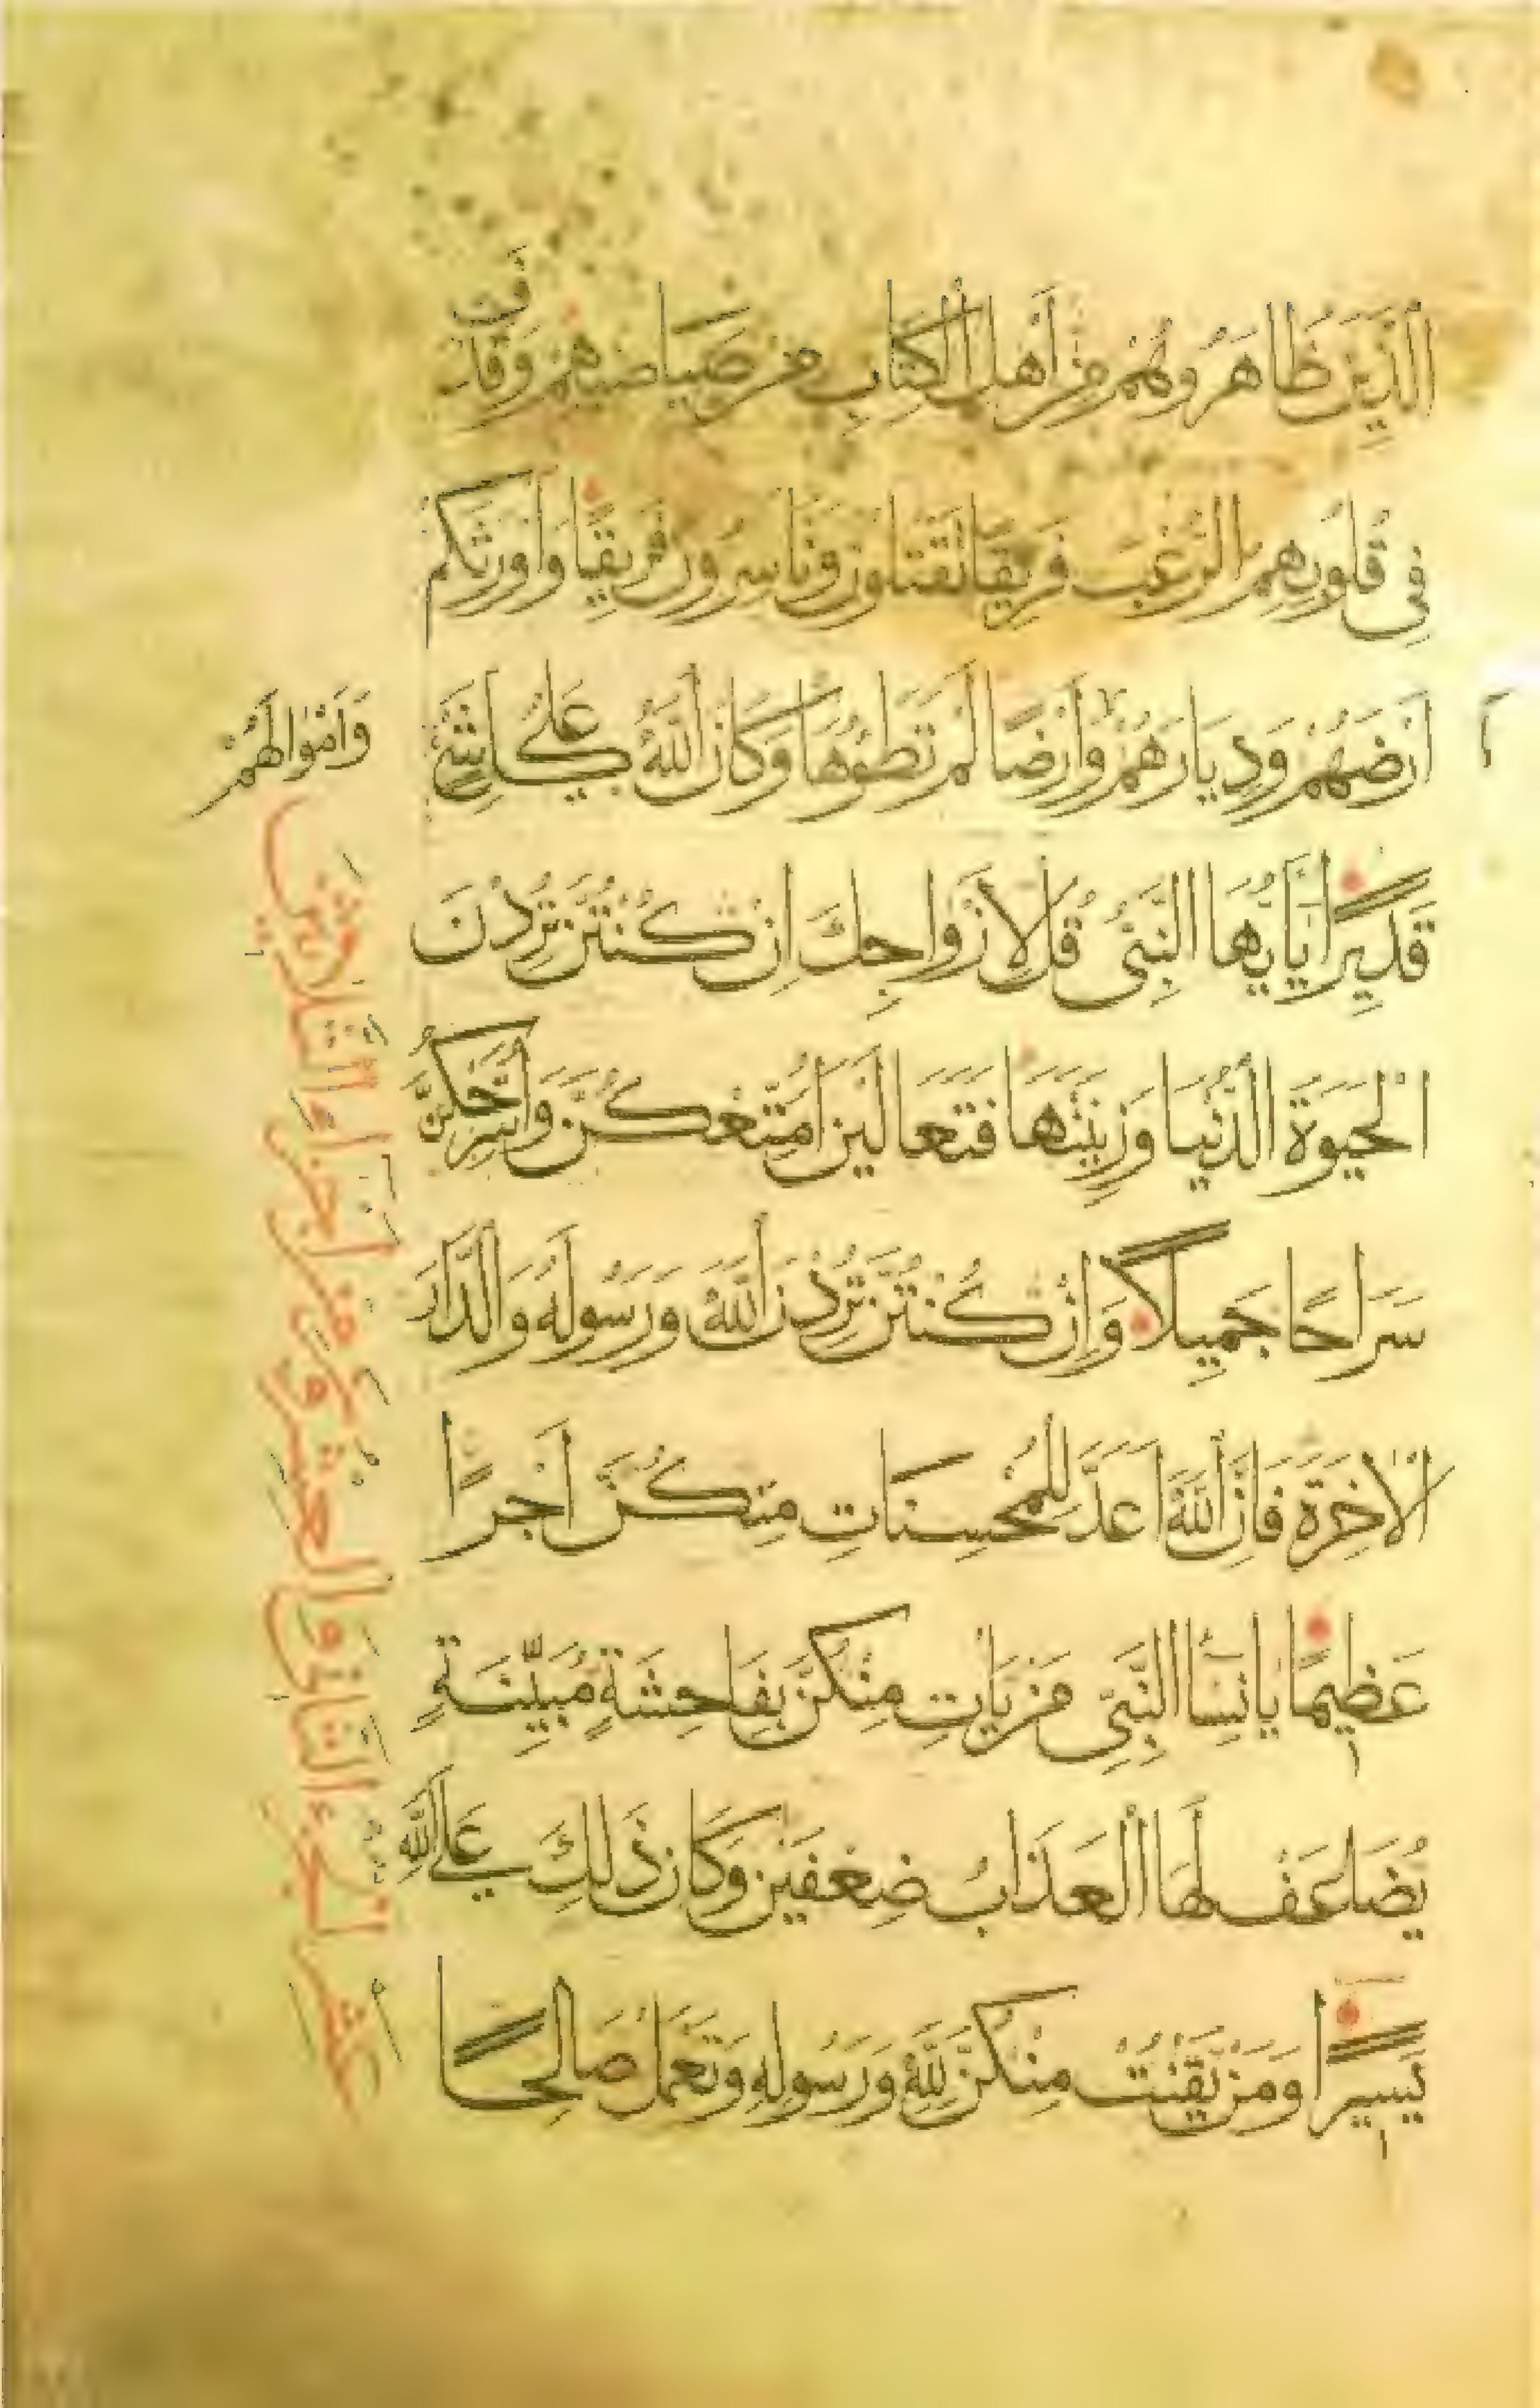 الَّذِينَ ظَاهَرُوهُمْ مِنْ أَهْلِ الْكِتَابِ مِنْ صَيَاصِيهِمْ وَقَذَفَ
فِي قُلُوبِهِمُ الرُّعْبَ فَرِيقًا تَقْتُلُونَ وَتَأْسِرُونَ فَرِيقًا وَأَوْرَثَكُمْ
أَرْضَهُمْ وَدِيَارَهُمْ وَأَرْضًا لَمْ تَطَئُوهَا وَكَانَ اللَّهُ عَلَى كُلِّ شَيْءٍ
وَأَمْوَالَهُمْ
قَدِيرًا يَا أَيُّهَا النَّبِيُّ قُلْ لِأَزْوَاجِكَ إِنْ كُنْتُنَّ تُرِدْنَ
الْحَيَوةَ الدُّنْيَا وَزِينَتَهَا فَتَعَالَيْنَ أُمَتِّعْكُنَّ وَأُسَرِّحْكُنَّ
سَرَاحًا جَمِيلًا وَإِنْ كُنْتُنَّ تُرِدْنَ اللَّهَ وَرَسُولَهُ وَالدَّارَ
الْآخِرَةَ فَإِنَّ اللَّهَ أَعَدَّ لِلْمُحْسِنَاتِ مِنْكُنَّ أَجْرًا
عَظِيمًا يَا نِسَاءَ النَّبِيِّ مَنْ يَأْتِ مِنْكُنَّ بِفَاحِشَةٍ مُبَيِّنَةٍ
يُضَاعَفْ لَهَا الْعَذَابُ ضِعْفَيْنِ وَكَانَ ذَلِكَ عَلَى اللَّهِ
يَسِيرًا وَمَنْ يَقْنُتْ مِنْكُنَّ لِلَّهِ وَرَسُولِهِ وَتَعْمَلْ صَالِحًا
الجزء الثاني والعشرون من أجزاء الثلاثين